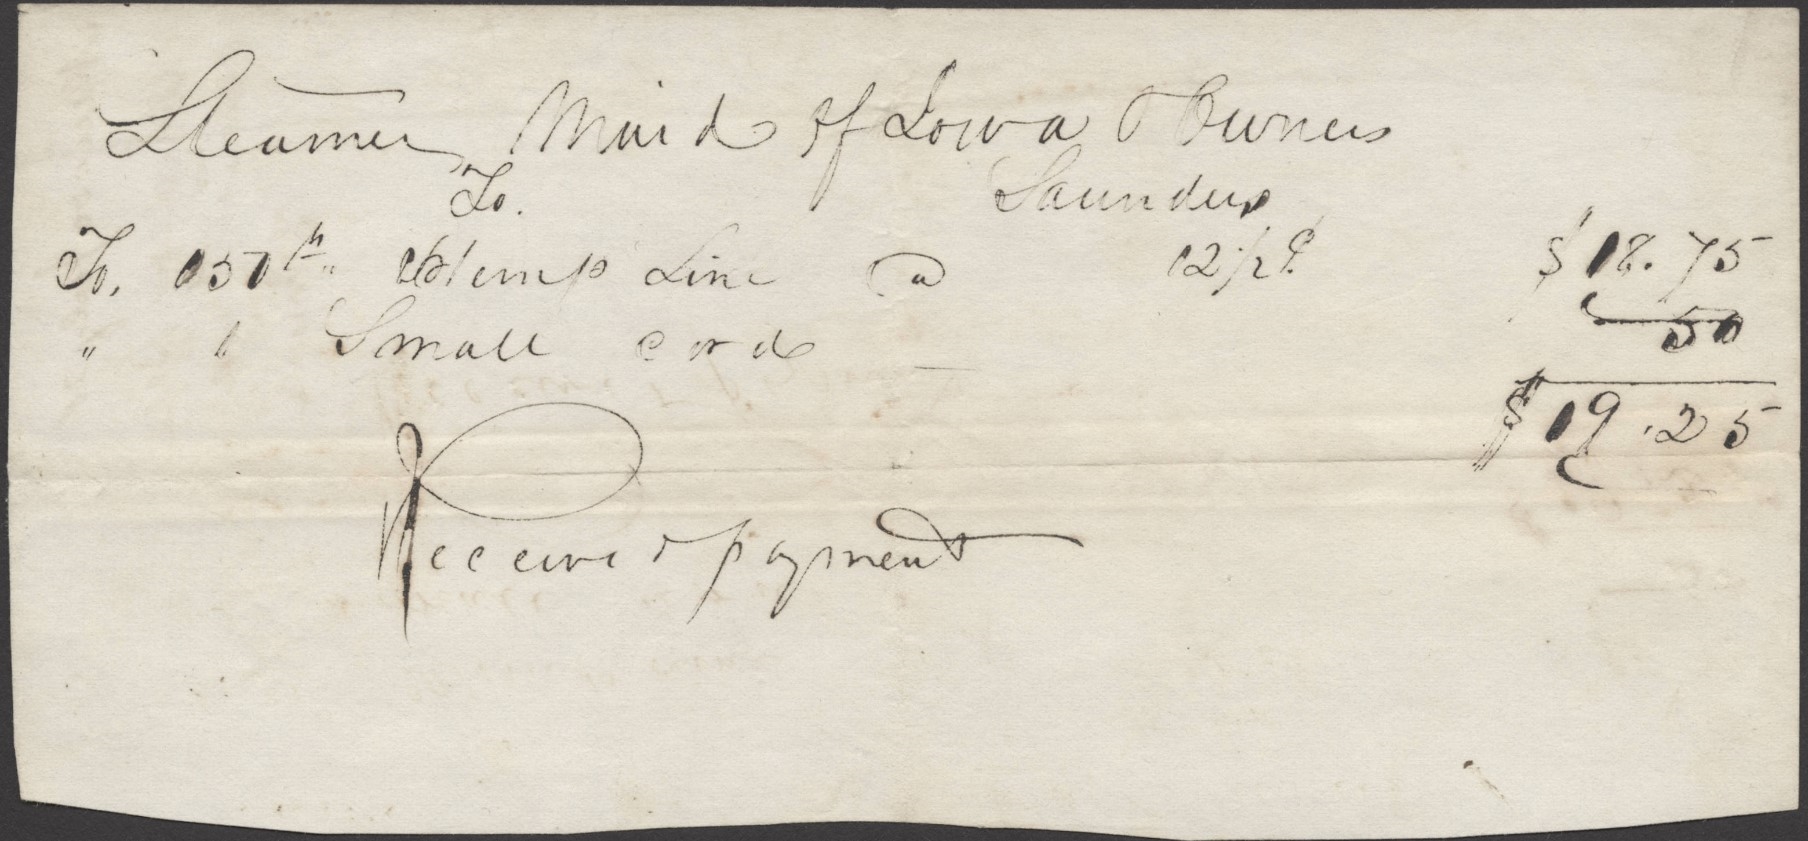 Steamer Maid of Iowa & Owners
To. Saunders
To. 150 lb " Hemp Line @ 12 1/2 ¢ $18.75
" " Small cord 50
$19.25
Received payment